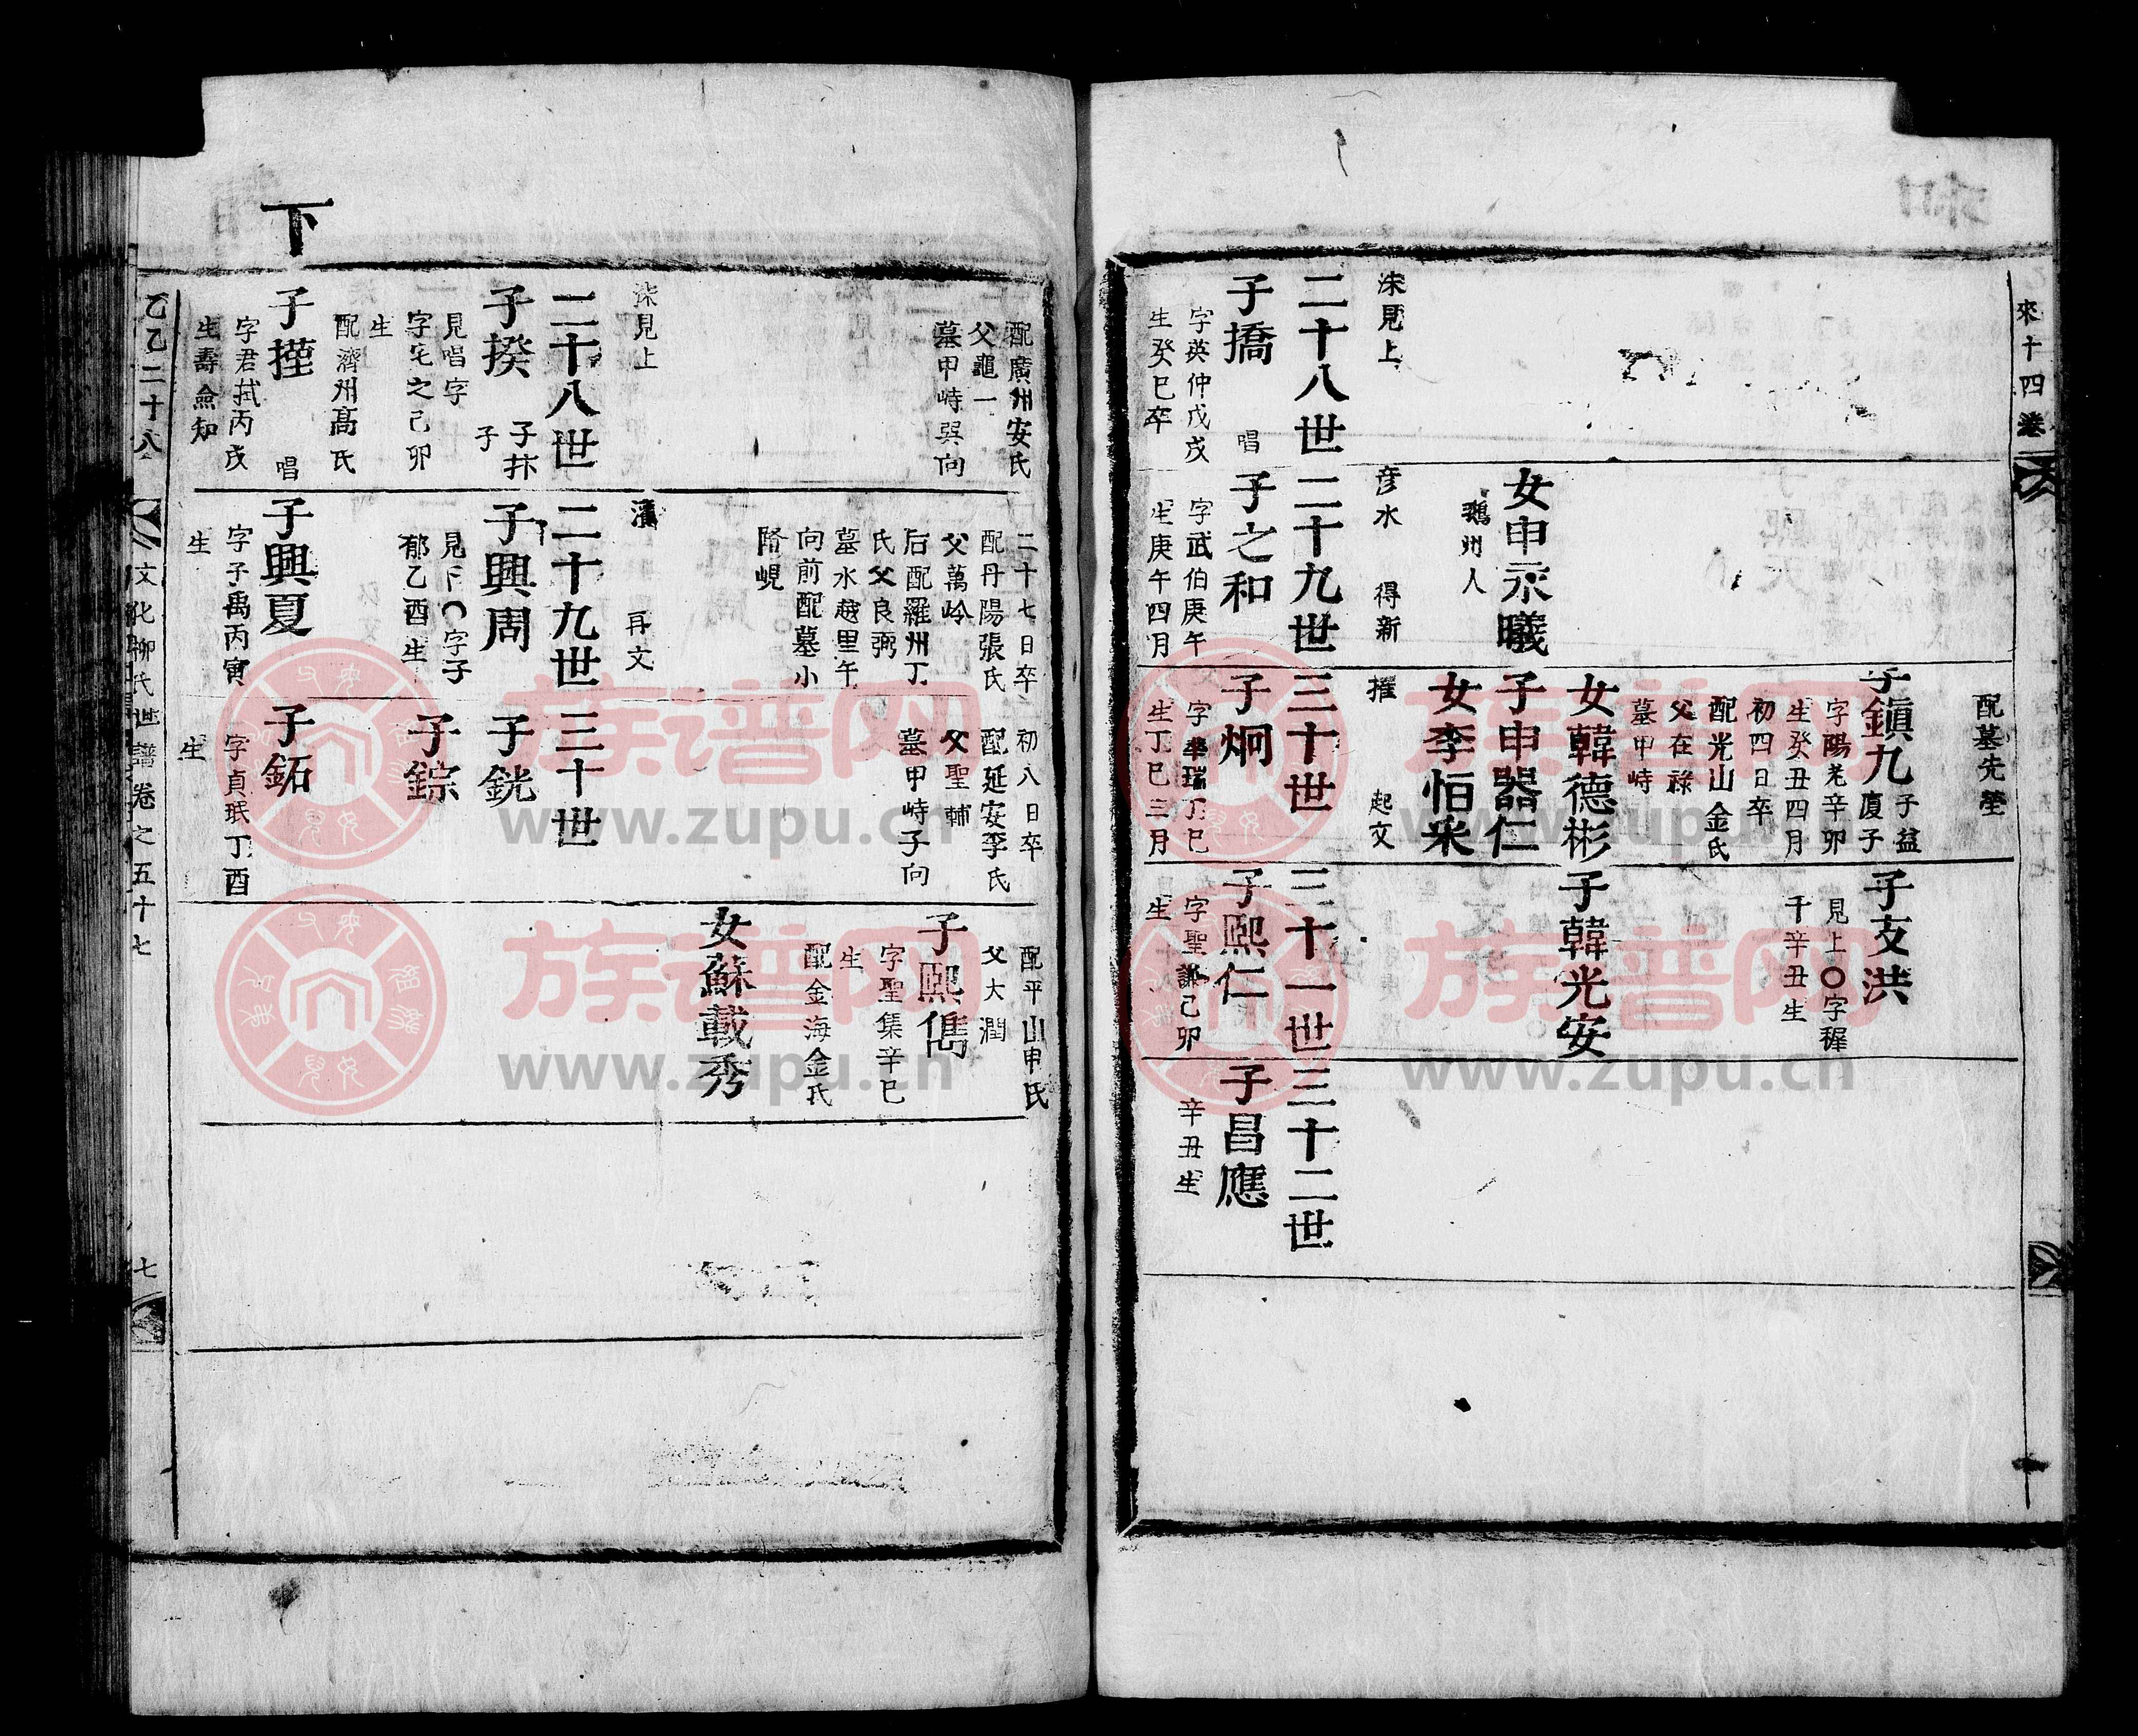 來十四卷
配墓先塋
子鎭九
子益
廈子
字陽老辛卯
生癸丑四月
初四日卒
配光山金氏
父在祿
墓甲峙
子友洪
見上〇字穉
千辛丑生
女韓德彬
子韓光安
女申永曦
鵝州人
子申器仁
女李怕采
洙見上
彦水
得新
推
起文
二十八世
二十九世
三十世
三十一世
三十二世
子撟
唱
字英仲戊戌
生癸巳卒
子之和
字武伯庚午
生庚午四月
子炯
字華瑞丁巳
生丁巳三月
子熙仁
字聖謙己卯
生
子昌應
辛丑生
配廣州安氏
父龜一
墓甲峙巽向
二十七日卒
配丹陽張氏
父萬岭
后配羅州丁
氏父良弼
墓水越里午
向前配墓小
踏峴
初八日卒
配延安李氏
父聖輔
墓甲峙子向
配平山申氏
父大潤
子熙儁
字聖集辛巳
生
配金海金氏
女蘇載秀
洙見上
再文
二十八世
二十九世
三十世
子揆
子抃
子
見唱字
字宅之己卯
生
配濟州高氏
子興周
見下〇字子
郁乙酉生
子銧
子錝
下
子㨙
唱
字君拭丙戌
生壽僉知
子興夏
字子禹丙寅
生
子鉐
字貞珉丁酉
生
乙乙二十八
文化柳氏世譜卷之五十七
七
族谱网
www.zupu.cn
族谱网
www.zupu.cn
族谱网
www.zupu.cn
族谱网
www.zupu.cn